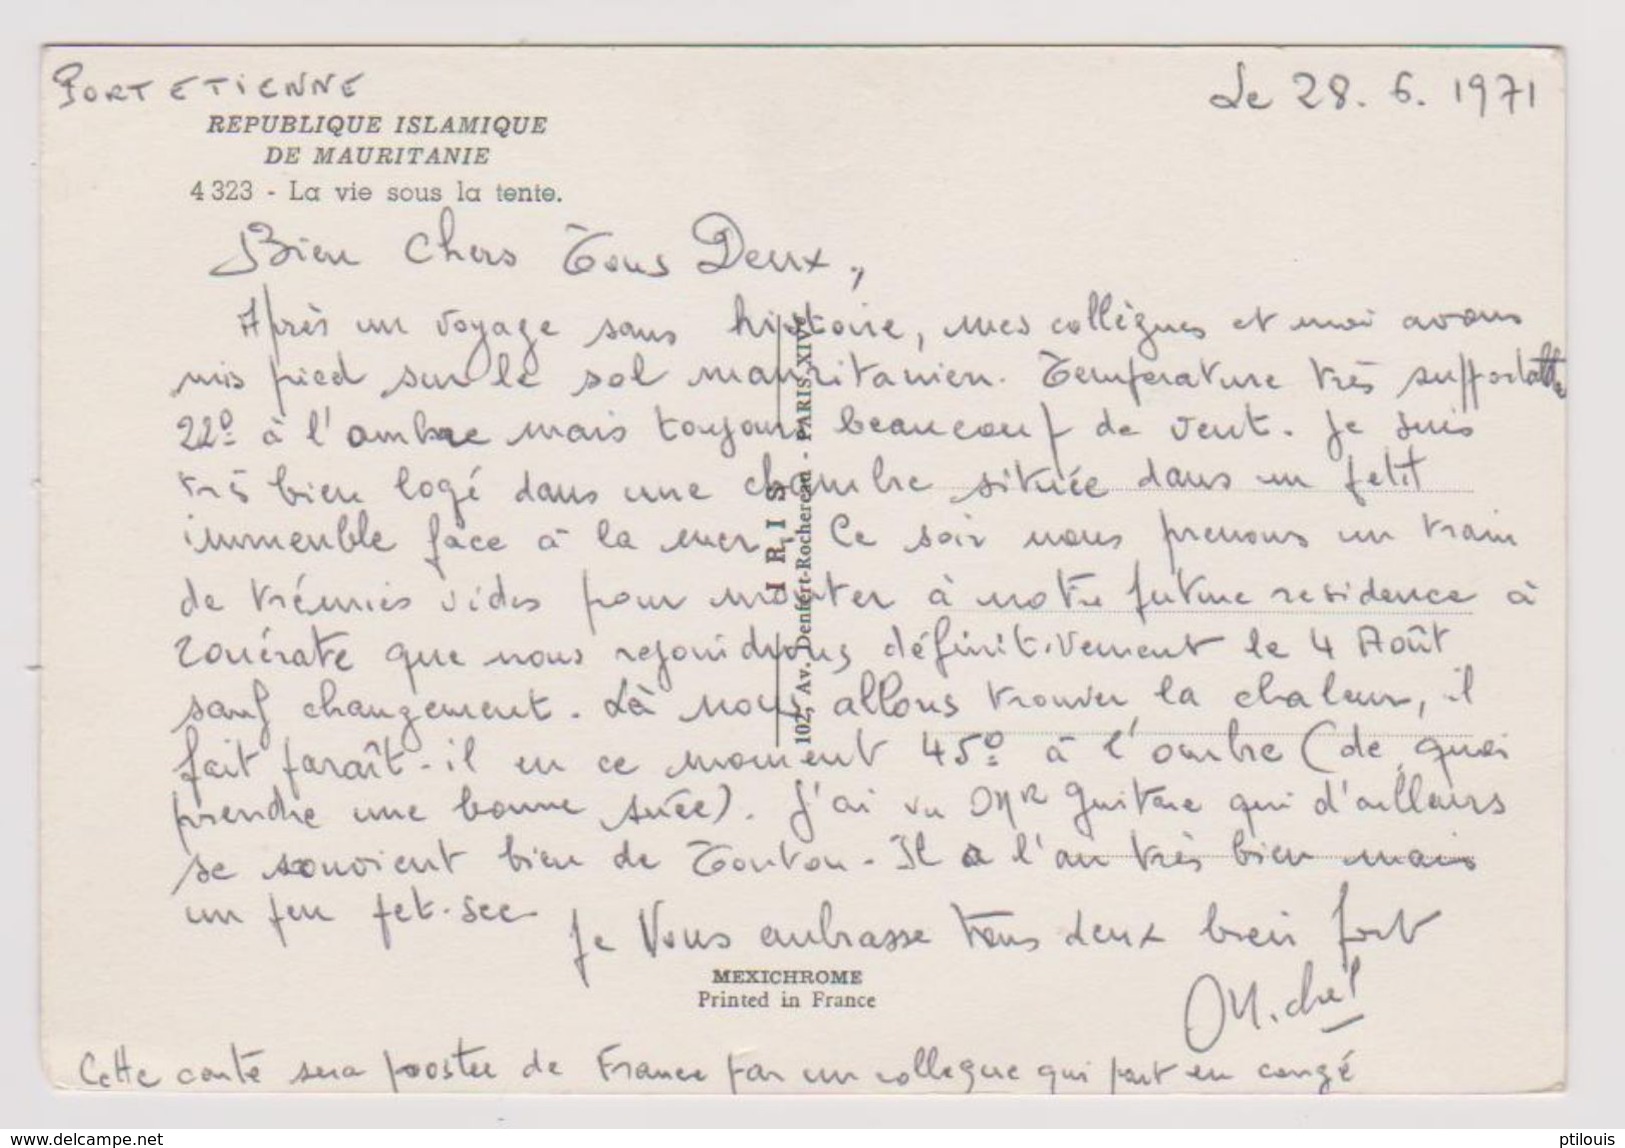 PORT ETIENNE
Le 28. 6. 1971
REPUBLIQUE ISLAMIQUE
DE MAURITANIE
4 323 - La vie sous la tente.
Bien Chers Tous Deux,
Après un voyage sans histoire, mes collègues et moi avons
mis pied sur le sol mauritanien. Température très supportable
22° à l'ombre mais toujours beaucoup de vent. Je suis
très bien logé dans une chambre située dans un petit
immeuble face à la mer. Ce soir nous prenons un train
de trémies vides pour monter à notre future residence à
Zouérate que nous rejoindrons définitivement le 4 Août
sauf changement. Là nous allons trouver la chaleur, il
fait paraît-il en ce moment 45° à l'ombre (de quoi
prendre une bonne suée). J'ai vu MR Guitare qui d'ailleurs
se souvient bien de Tonton. Il a l'air très bien mais
un peu pet-sec
Je Vous embrasse tous deux bien fort
Michel
I R I S
102, Av. Denfert-Rochereau - PARIS XIVe
MEXICHROME
Printed in France
Cette carte sera postée de France par un collegue qui part en congé
www.delcampe.net
ptilouis